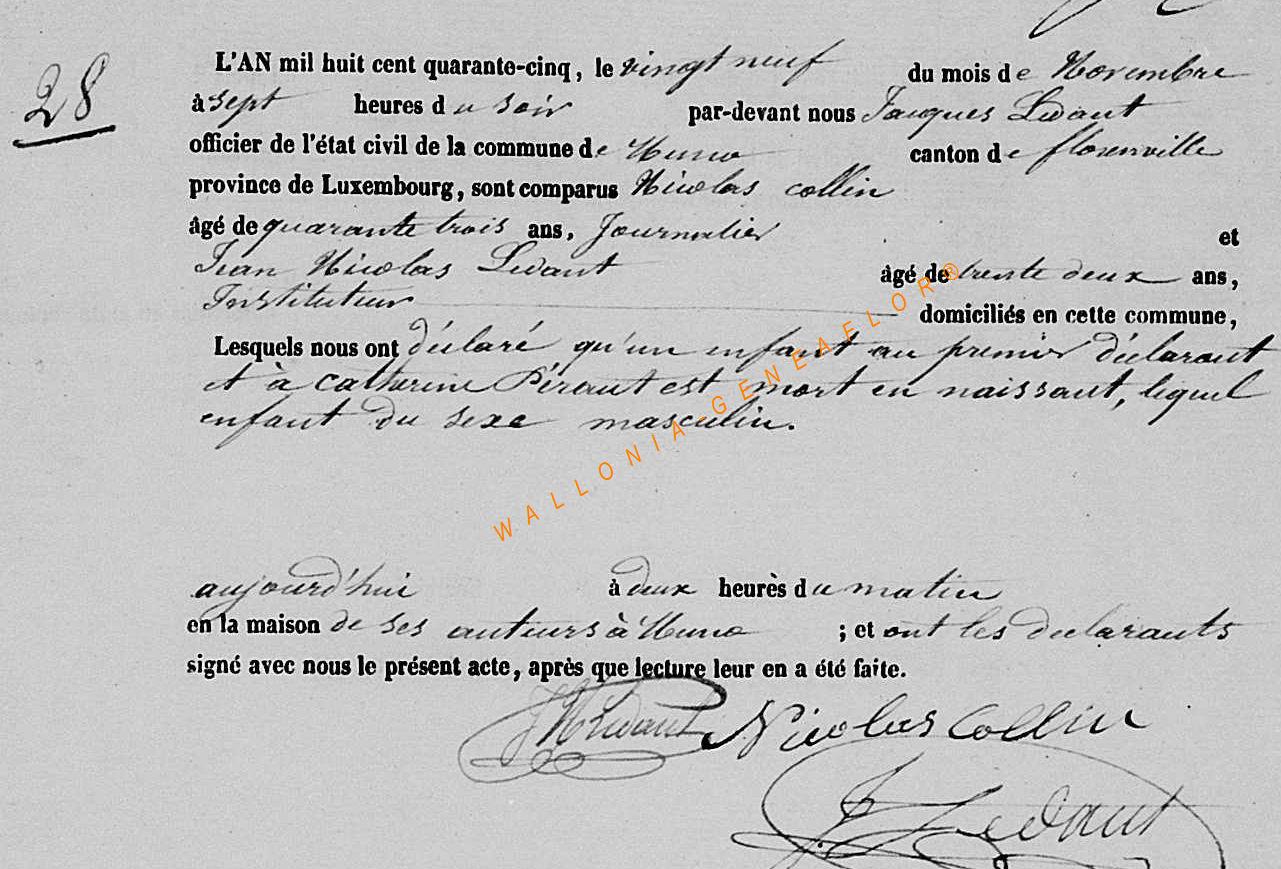 28
L'AN mil huit cent quarante-cinq, le vingt neuf du mois de Novembre
à sept heures du soir par-devant nous Jacques Ledant
officier de l'état civil de la commune de Muno canton de florenville
province de Luxembourg, sont comparus Nicolas collin
âgé de quarante trois ans, Journalier et
Jean Nicolas Ledant âgé de trente deux ans,
Instituteur domiciliés en cette commune,
Lesquels nous ont déclaré qu'un enfant au premier déclarant
et à Catherine est mort en naissant, lequel
enfant du sexe masculin.
WALLONIA-GENEAFLOR®
aujourd'hui à deux heures du matin
en la maison de ses auteurs à Muno ; et ont les declarants
signé avec nous le présent acte, après que lecture leur en a été faite.
JNLedant Nicolas Collin
J Ledant